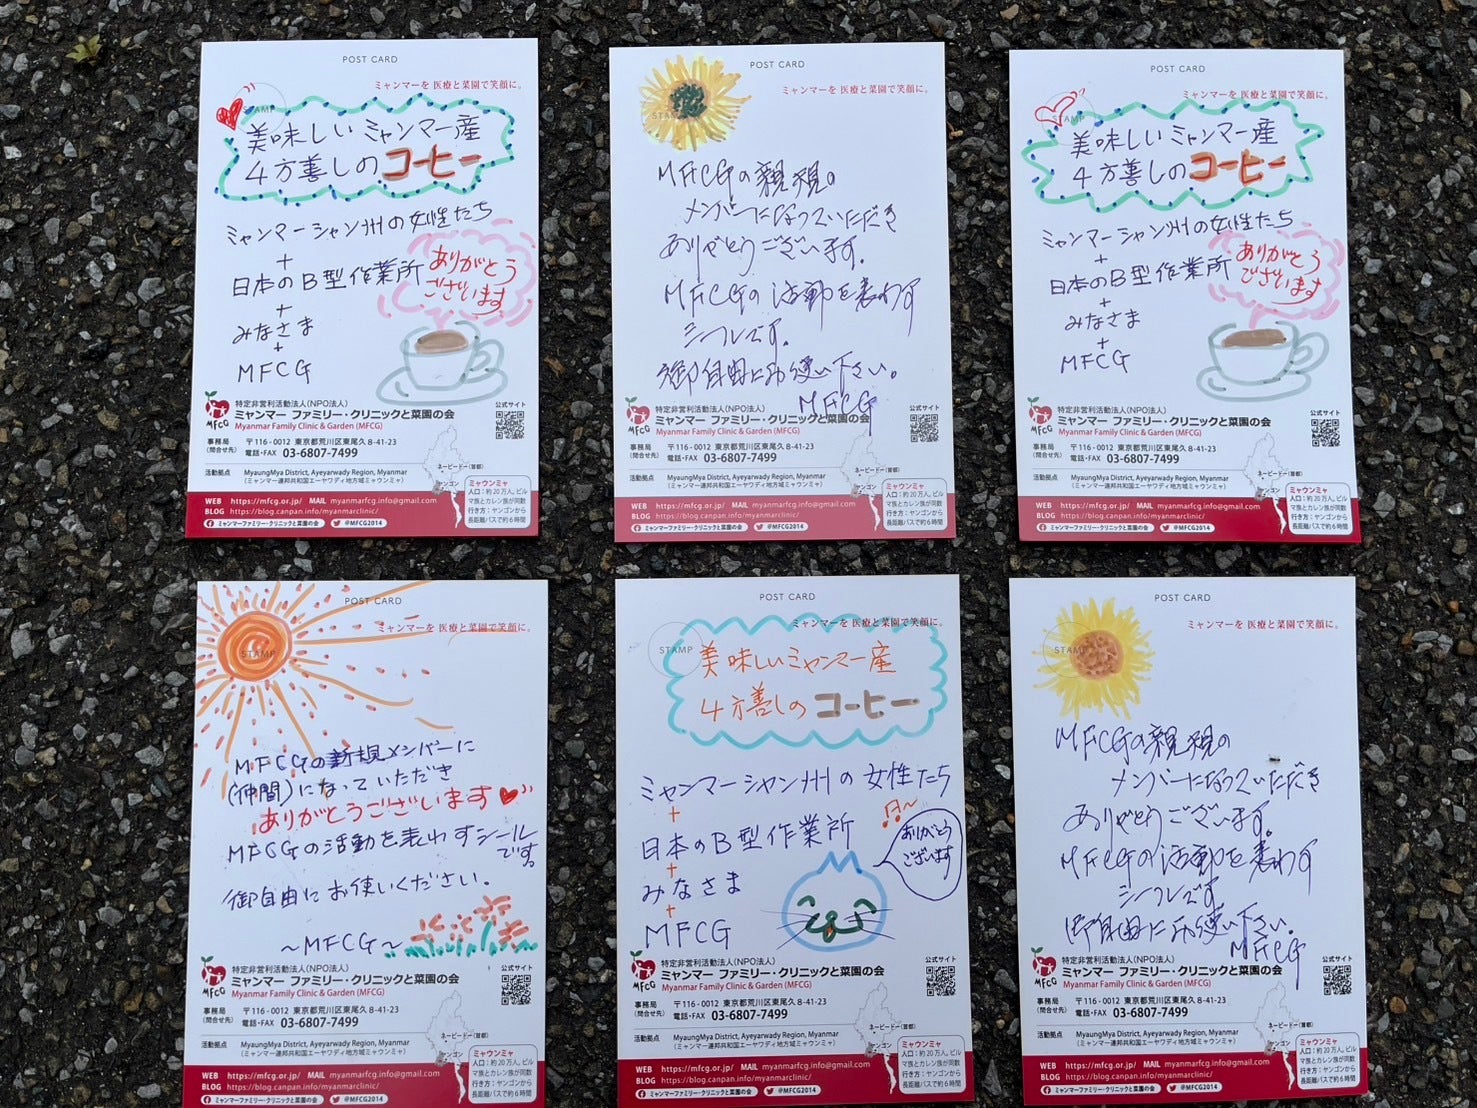 POST CARD
ミャンマーを 医療と菜園で笑顔に。
STAMP
美味しいミャンマー産
4方善しのコーヒー
ミャンマーシャン州の女性たち
+
日本のB型作業所
+
みなさま
+
MFCG
ありがとう
ございます
特定非営利活動法人(NPO法人)
ミャンマー ファミリー・クリニックと菜園の会
Myanmar Family Clinic & Garden (MFCG)
MFCG
公式サイト
事務局
(問合せ先)
〒116-0012 東京都荒川区東尾久8-41-23
電話・FAX 03-6807-7499
活動拠点
MyaungMya District, Ayeyarwady Region, Myanmar
(ミャンマー連邦共和国エーヤワディ地方域ミャウンミャ)
ネーピードー(首都)
ヤンゴン
ミャウンミャ
人口:約20万人。ビル
マ族とカレン族が同数
行き方:ヤンゴンから
長距離バスで約6時間
WEB https://mfcg.or.jp/ MAIL myanmarfcg.info@gmail.com
BLOG https://blog.canpan.info/myanmarclinic/
ミャンマーファミリー・クリニックと菜園の会 @MFCG2014
POST CARD
ミャンマーを 医療と菜園で笑顔に。
STAMP
MFCGの親規の
メンバーになっていただき
ありがとうございます。
MFCGの活動を表わす
シールです。
御自由にお使い下さい。
MFCG
特定非営利活動法人(NPO法人)
ミャンマー ファミリー・クリニックと菜園の会
Myanmar Family Clinic & Garden (MFCG)
MFCG
公式サイト
事務局
(問合せ先)
〒116-0012 東京都荒川区東尾久8-41-23
電話・FAX 03-6807-7499
活動拠点
MyaungMya District, Ayeyarwady Region, Myanmar
(ミャンマー連邦共和国エーヤワディ地方域ミャウンミャ)
ネーピードー(首都)
ヤンゴン
ミャウンミャ
人口:約20万人。ビル
マ族とカレン族が同数
行き方:ヤンゴンから
長距離バスで約6時間
WEB https://mfcg.or.jp/ MAIL myanmarfcg.info@gmail.com
BLOG https://blog.canpan.info/myanmarclinic/
ミャンマーファミリー・クリニックと菜園の会 @MFCG2014
POST CARD
ミャンマーを 医療と菜園で笑顔に。
STAMP
美味しいミャンマー産
4方善しのコーヒー
ミャンマーシャン州の女性たち
+
日本のB型作業所
+
みなさま
+
MFCG
ありがとう
ございます
特定非営利活動法人(NPO法人)
ミャンマー ファミリー・クリニックと菜園の会
Myanmar Family Clinic & Garden (MFCG)
MFCG
公式サイト
事務局
(問合せ先)
〒116-0012 東京都荒川区東尾久8-41-23
電話・FAX 03-6807-7499
活動拠点
MyaungMya District, Ayeyarwady Region, Myanmar
(ミャンマー連邦共和国エーヤワディ地方域ミャウンミャ)
ネーピードー(首都)
ヤンゴン
ミャウンミャ
人口:約20万人。ビル
マ族とカレン族が同数
行き方:ヤンゴンから
長距離バスで約6時間
WEB https://mfcg.or.jp/ MAIL myanmarfcg.info@gmail.com
BLOG https://blog.canpan.info/myanmarclinic/
ミャンマーファミリー・クリニックと菜園の会 @MFCG2014
POST CARD
ミャンマーを 医療と菜園で笑顔に。
STAMP
MFCGの新規メンバーに
(仲間)になっていただき
ありがとうございます
MFCGの活動を表わすシール
です。
御自由にお使いください。
~MFCG~
特定非営利活動法人(NPO法人)
ミャンマー ファミリー・クリニックと菜園の会
Myanmar Family Clinic & Garden (MFCG)
MFCG
公式サイト
事務局
(問合せ先)
〒116-0012 東京都荒川区東尾久8-41-23
電話・FAX 03-6807-7499
活動拠点
MyaungMya District, Ayeyarwady Region, Myanmar
(ミャンマー連邦共和国エーヤワディ地方域ミャウンミャ)
ネーピードー(首都)
ヤンゴン
ミャウンミャ
人口:約20万人。ビル
マ族とカレン族が同数
行き方:ヤンゴンから
長距離バスで約6時間
WEB https://mfcg.or.jp/ MAIL myanmarfcg.info@gmail.com
BLOG https://blog.canpan.info/myanmarclinic/
ミャンマーファミリー・クリニックと菜園の会 @MFCG2014
POST CARD
ミャンマーを 医療と菜園で笑顔に。
STAMP
美味しいミャンマー産
4方善しのコーヒー
ミャンマーシャン州の女性たち
+
日本のB型作業所
+
みなさま
+
MFCG
ありがとう
ございます
特定非営利活動法人(NPO法人)
ミャンマー ファミリー・クリニックと菜園の会
Myanmar Family Clinic & Garden (MFCG)
MFCG
公式サイト
事務局
(問合せ先)
〒116-0012 東京都荒川区東尾久8-41-23
電話・FAX 03-6807-7499
活動拠点
MyaungMya District, Ayeyarwady Region, Myanmar
(ミャンマー連邦共和国エーヤワディ地方域ミャウンミャ)
ネーピードー(首都)
ヤンゴン
ミャウンミャ
人口:約20万人。ビル
マ族とカレン族が同数
行き方:ヤンゴンから
長距離バスで約6時間
WEB https://mfcg.or.jp/ MAIL myanmarfcg.info@gmail.com
BLOG https://blog.canpan.info/myanmarclinic/
ミャンマーファミリー・クリニックと菜園の会 @MFCG2014
POST CARD
ミャンマーを 医療と菜園で笑顔に。
STAMP
MFCGの親規の
メンバーになっていただき
ありがとうございます。
MFCGの活動を表わす
シールです
御自由にお使い下さい。
MFCG
特定非営利活動法人(NPO法人)
ミャンマー ファミリー・クリニックと菜園の会
Myanmar Family Clinic & Garden (MFCG)
MFCG
公式サイト
事務局
(問合せ先)
〒116-0012 東京都荒川区東尾久8-41-23
電話・FAX 03-6807-7499
活動拠点
MyaungMya District, Ayeyarwady Region, Myanmar
(ミャンマー連邦共和国エーヤワディ地方域ミャウンミャ)
ネーピードー(首都)
ヤンゴン
ミャウンミャ
人口:約20万人。ビル
マ族とカレン族が同数
行き方:ヤンゴンから
長距離バスで約6時間
WEB https://mfcg.or.jp/ MAIL myanmarfcg.info@gmail.com
BLOG https://blog.canpan.info/myanmarclinic/
ミャンマーファミリー・クリニックと菜園の会 @MFCG2014